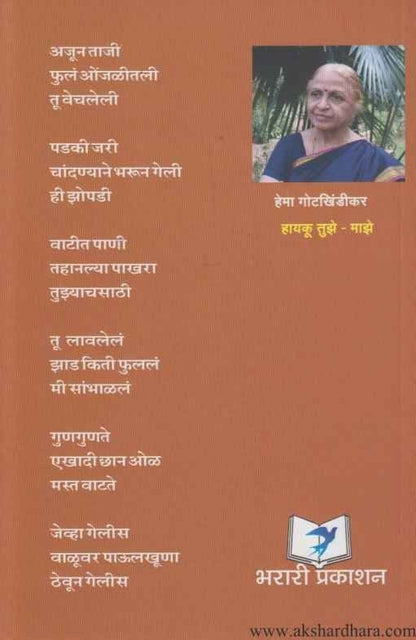 अजून ताजी
फुलं ओंजळीतली
तू वेचलेली
पडकी जरी
चांदण्याने भरून गेली
ही झोपडी
वाटीत पाणी
तहानल्या पाखरा
तुझ्याचसाठी
तू लावलेलं
झाड किती फुललं
मी सांभाळलं
गुणगुणते
एखादी छान ओळ
मस्त वाटते
जेव्हा गेलीस
वाळूवर पाऊलखूणा
ठेवून गेलीस
हेमा गोटखिंडीकर
हायकू तुझे - माझे
भरारी प्रकाशन
www.akshardhara.com